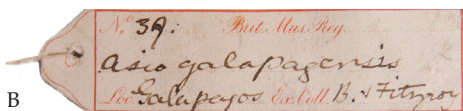 No. 39. Brit. Mus. Reg.
Asio galapagensis
Loc. Galapagos Ex Coll. B. & Fitzroy
B